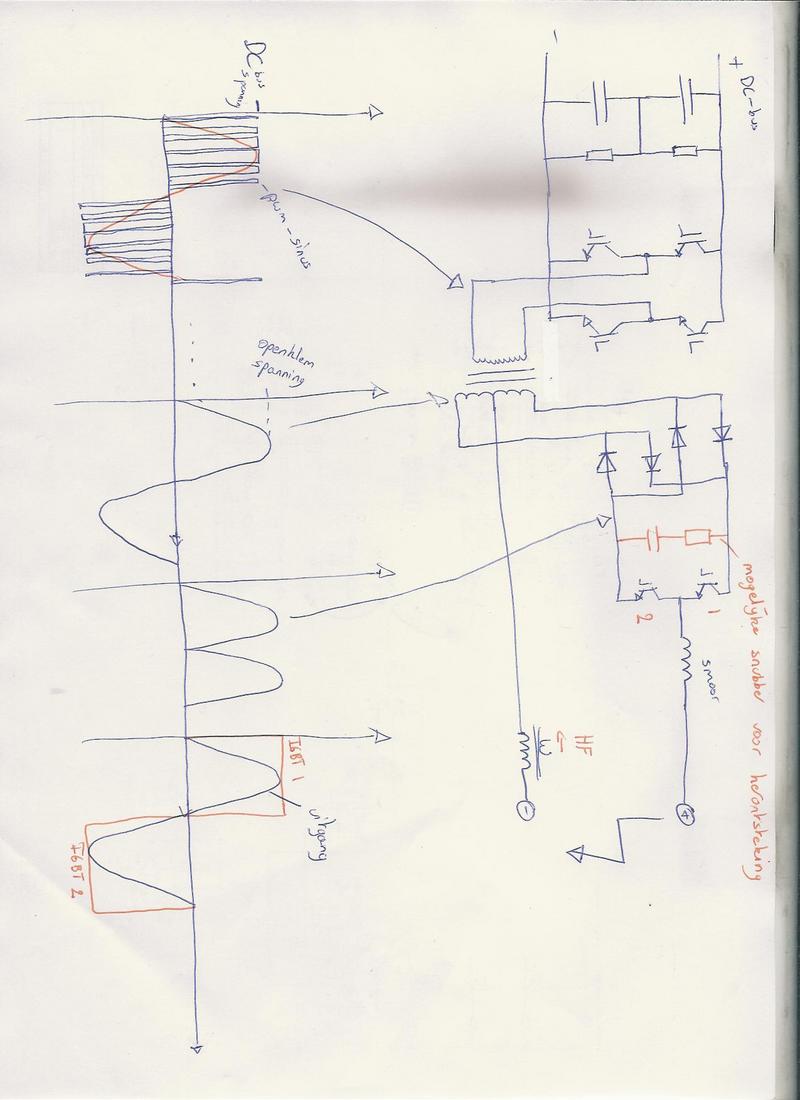 + DC-bus
-
DC bus
spanning
pwm-sinus
openklem
spanning
mogelijke snubber voor herontsteking
1
2
smoor
+
HF
-
IGBT 1
uitgang
IGBT 2